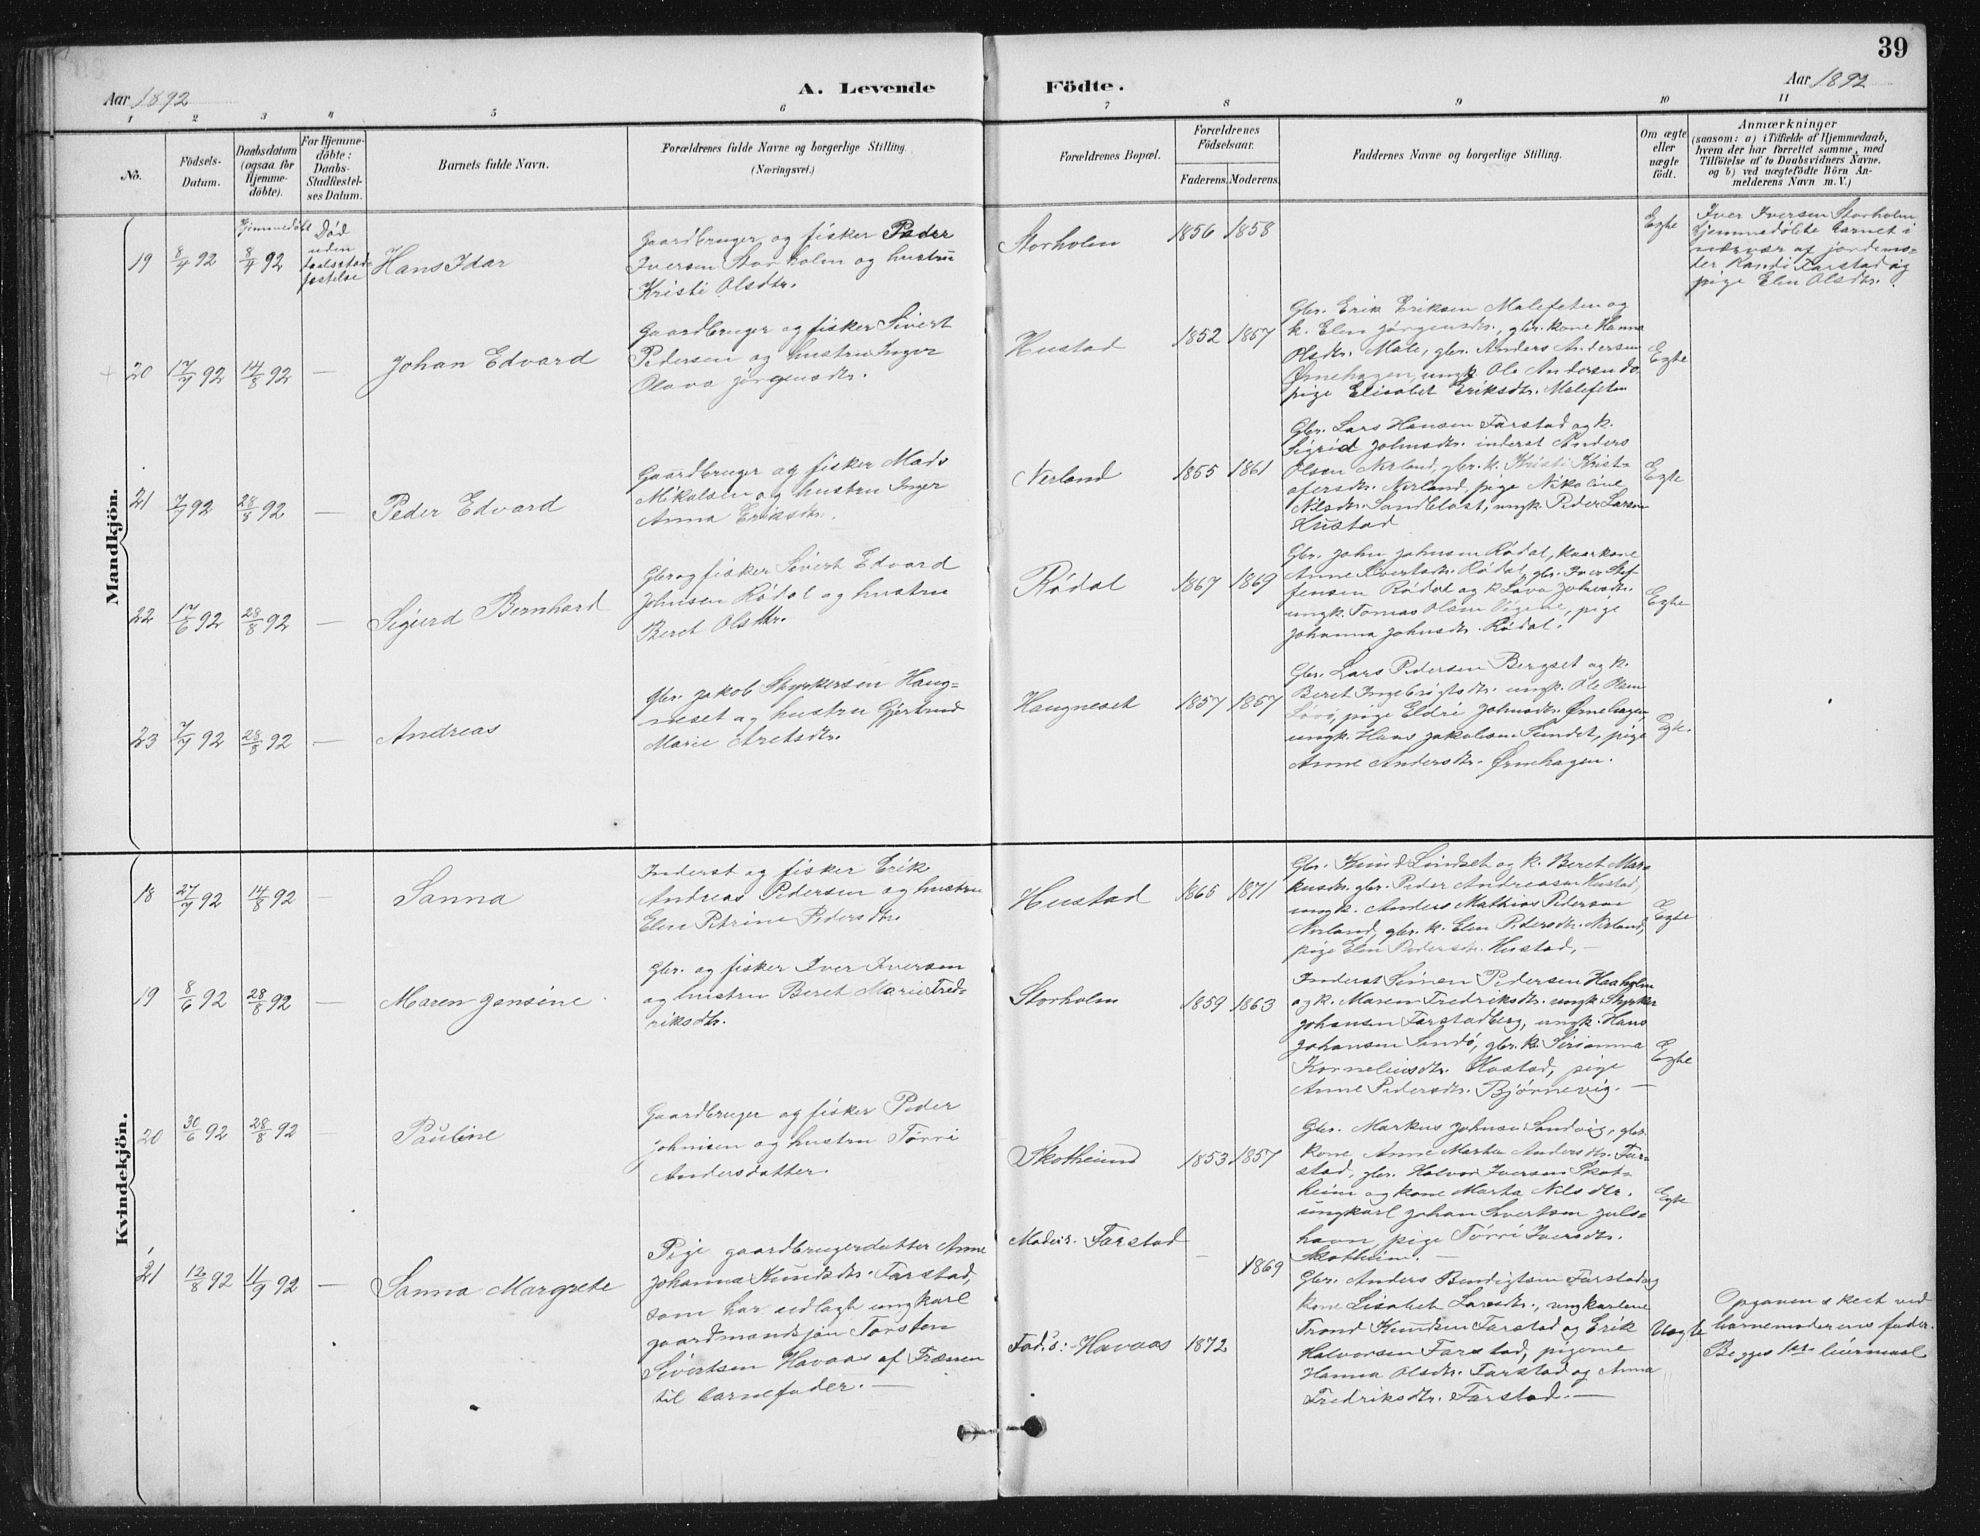 39
Aar 1892
A. Levende
Födte.
Aar 1892
1 2 3 4 5 6 7 8 9 10 11
No.
Födsels-
Datum.
Daabsdatum
(ogsaa for
Hjemme-
döbte).
For Hjemme-
döbte:
Daabs-
Stadfæstel-
ses Datum.
Barnets fulde Navn.
Forældrenes fulde Navne og borgerlige Stilling.
(Næringsvei.)
Forældrenes Bopæl.
Forældrenes
Födselsaar.
Faderens.
Moderens.
Faddernes Navne og borgerlige Stilling.
Om ægte
eller
uægte
födt.
Anmærkninger
(saasom: a) i Tilfælde af Hjemmedaab,
hvem der har forrettet samme, med
Tilföielse af to Daabsvidners Navne.
og b) ved uægtefödte Börn An-
melderens Navn m. V.)
Mandkjön.
19
8/7 92
Hjemmedøbt
8/7 92
Død
uden
daabsstad-
fæstelse
Hans Idar
Gaardbruger og fisker Peder
Iversen Storholm og hustru
Kristi Olsdtr.
Storholm
1856
1858
Egte
Iver Iversen Storholm
hjemmedøbte barnet i
nærvær af jordemo-
der Randi Farstad og
pige Elen Olsdtr.
20
17/7 92
14/8 92
—
Johan Edvard
Gaardbruger og fisker Sivert
Pedersen og hustru Inger
Olava Jørgensdtr.
Hustad
1852
1857
Gbr. Erik Eriksen Malefeten og
k. Elen Jørgensdtr., gbr. kone Hanna
Olsdtr. Male, gbr. Anders Andersen
Ørnehagen, ungk. Ole Andersen do.
pige Elisabet Eriksdtr. Malefeten
Egte
21
7/7 92
28/8 92
—
Peder Edvard
Gaardbruger og fisker Mads
Mikalsen og hustru Inger
Anna Eriksdtr.
Nerland
1855
1861
Gbr. Lars Hansen Farstad og k.
Sigrid Johnsdtr. inderst Anders
Olsen Nerland, gbr. k. Kristi Krist-
ofersdtr. Nerland, pige Nikoline
Nilsdtr. Sandblost, ungk. Peder Larsen
Hustad
Egte
22
17/6 92
28/8 92
—
Sigurd Bernhard
Gbr og fisker Sivert Edvard
Johnsen Rødal og hustru
Beret Olsdtr.
Rødal
1867
1869
Gbr. John Johnsen Rødal, kaarkone
Anne Sivertsdtr. Rødal, gbr. Iver Stef-
fensen Rødal og k. Lava Johnsdtr.
ungk. Tomas Olsen Vigene, pige
Johanna Johnsdtr. Rødal.
Egte
23
7/7 92
28/8 92
—
Andreas
Gbr. Jakob Styrkersen Haug-
neset og hustru Gjertrud
Marie Aretsdtr.
Haugneset
1857
1857
Gbr. Lars Pedersen Bergset og k.
Beret Ingebrigtsdtr. ungk. Ole Olsen
pige Eldri Johnsdtr. Ørnehagen,
ungk. Hans Jakobsen Sundet, pige
Anne Andersdtr. Ørnehagen.
Egte
Kvindekjön.
18
27/7 92
14/8 92
—
Sanna
Inderst og fisker Erik
Andreas Pedersen og hustru
Elen Petrine Pedersdtr.
Hustad
1865
1871
Gbr. Knud Lindset og k. Beret Mar-
kusdtr. gbr. Peder Andreasen Hustad,
ungk. Anders Mathias Pedersen
Nerland, gbr. k. Elen Pedersdtr. Nerland,
pige Elen Pedersdtr. Hustad. —
Egte
19
8/6 92
28/8 92
—
Maren Jensine
Gbr. og fisker Iver Iversen
og hustru Beret Marie Fred-
riksdtr.
Storholm
1859
1863
Inderst Simon Pedersen Haaholm
og k. Maren Fredriksdtr. ungk. Styrker
Johansen Farstadberg, ungk. Hans
Johansen Sandø, gbr. k. Sirianna
Korneliusdtr. Hustad, pige
Anne Pedersdtr. Bjørnevig. —
Egte
20
30/6 92
28/8 92
—
Pauline
Gaardbruger og fisker Peder
Johnsen og hustru Tørri
Andersdatter.
Skotheim
1853
1857
Gbr. Markus Johnsen Sandvig, gbr.
kone Anne Marta Andersdtr. Far-
stad, gbr. Halvor Iversen Skot-
heim og kone Marta Nilsdtr.
ungkarl Johan Sivertsen Juls-
havn, pige Tørri Iversdtr.
Skotheim. —
Egte
21
12/8 92
11/9 92
—
Sanna Margrete
Pige gaardbrugerdatter Anne
Johanna Knudsdtr. Farstad,
som har udlagt ungkarl
gaardmandssøn Torsten
Sivertsen Havaas af Frænen
til barnefader. —
Moders. Farstad
Fad's: Havaas
—
1872
1869
Gbr. Anders Bendigtsen Farstad og
kone Lisabet Larsdtr., ungkarlene
Trond Knudsen Farstad og Erik
Halvorsen Farstad, pigerne
Hanna Olsdtr. Farstad og Anna
Fredriksdtr. Farstad. —
Uegte
Opgaven skeet ved
barnemoderens fader.
Begges 1ste leiermaal